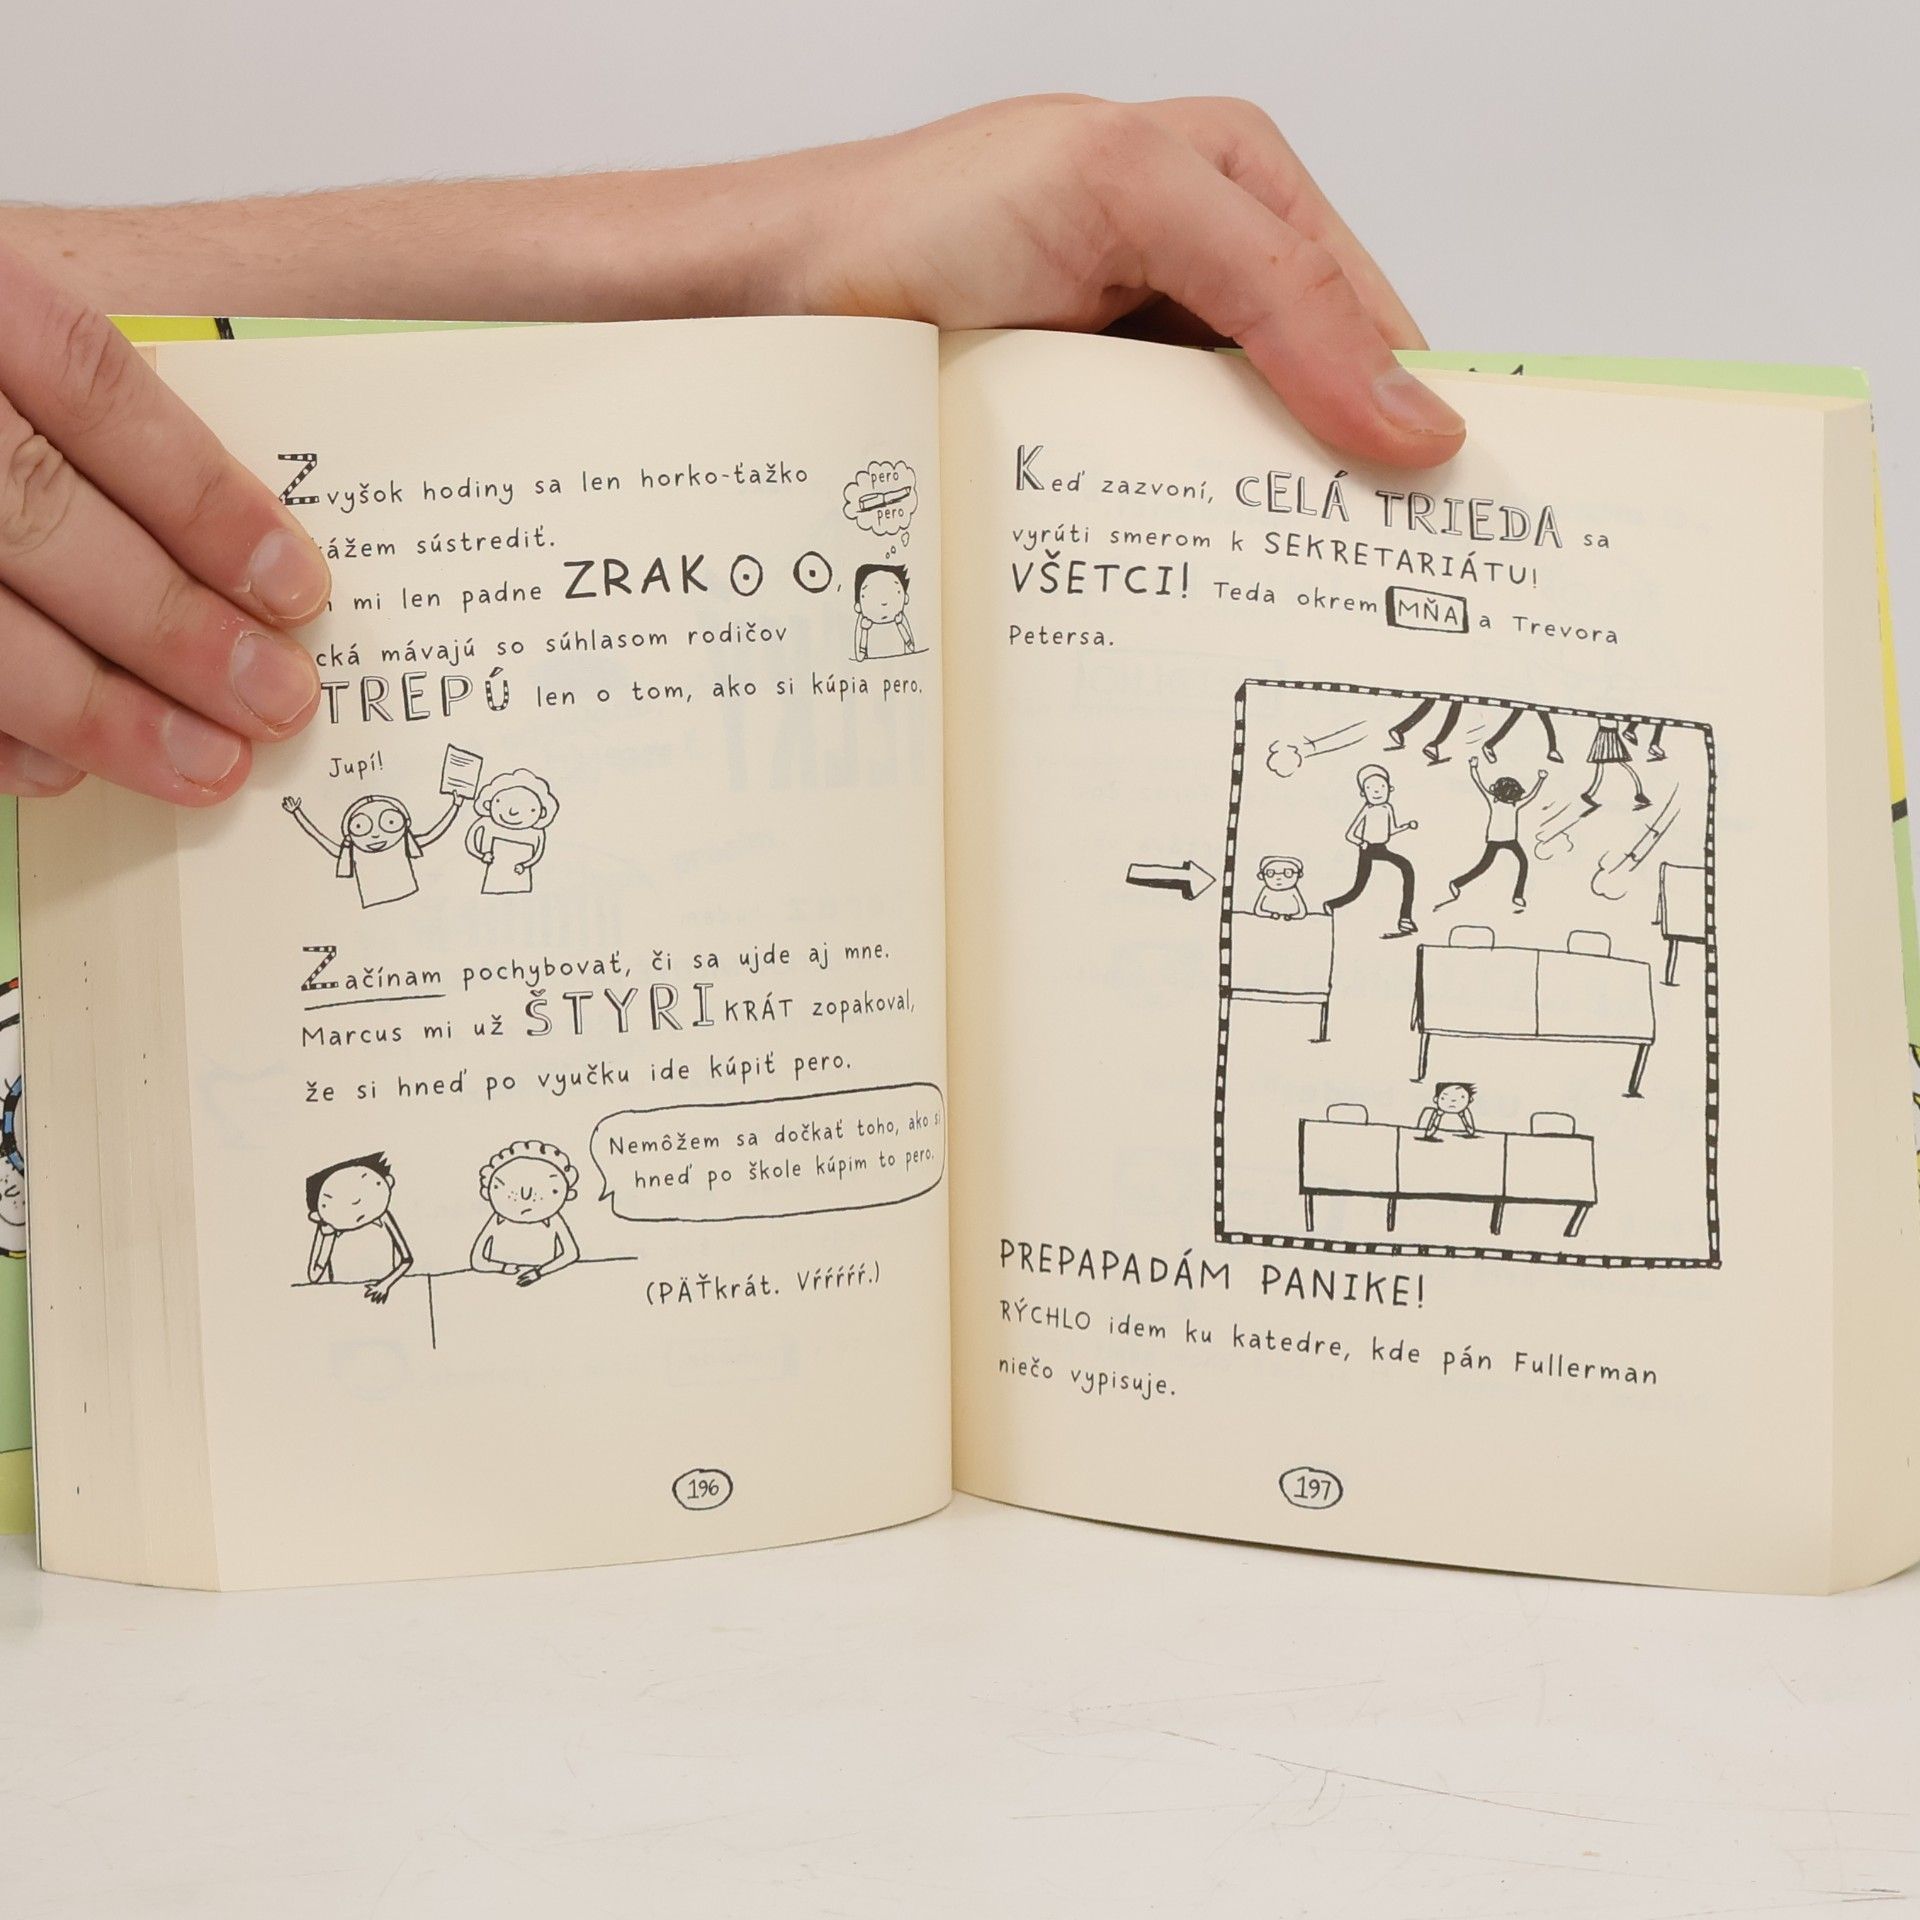 Zvyšok hodiny sa len horko-ťažko
sústrediť.
mi len padne ZRAK
mávajú so súhlasom rodičov
len o tom, ako si kúpia pero.
pero
pero
Jupí!
Začínam pochybovať, či sa ujde aj mne.
Marcus mi už ŠTYRIKRÁT zopakoval,
že si hneď po vyučku ide kúpiť pero.
Nemôžem sa dočkať toho, ako si
hneď po škole kúpim to pero.
(PÄŤkrát. Vŕŕŕŕŕ.)
196
Keď zazvoní, CELÁ TRIEDA sa
vyrúti smerom k SEKRETARIÁTU!
VŠETCI! Teda okrem MŇA a Trevora
Petersa.
PREPAPADÁM PANIKE!
RÝCHLO idem ku katedre, kde pán Fullerman
niečo vypisuje.
197